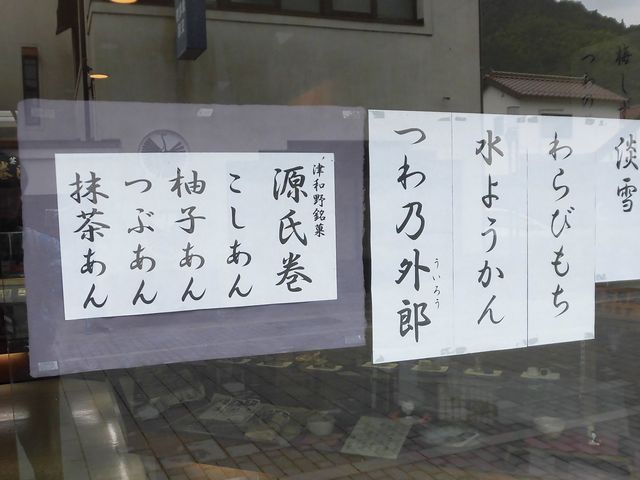 津和野銘菓
源氏巻
こしあん
柚子あん
つぶあん
抹茶あん
淡雪
わらびもち
水ようかん
つわ乃外郎
ういろう